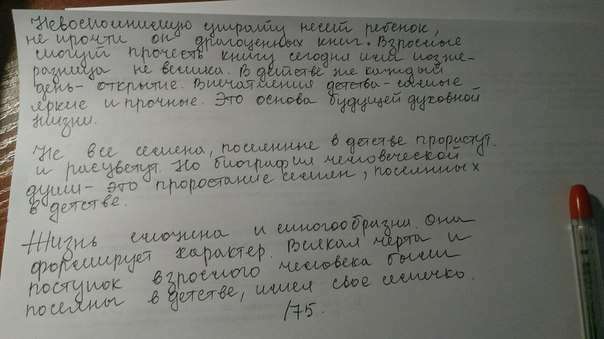 Невосполнимую утрату несет ребенок,
не прочти он драгоценных книг. Взрослые
смогут прочесть книгу сегодня или позже-
разница не велика. В детстве же каждый
день- открытие. Впечатления детства - самые
яркие и прочные. Это основа будущей духовной
жизни.
Не все семена, посеянные в детстве прорастут.
и расцветут. Но биография человеческой
души - это проростание семян, посеянных
в детстве.
Жизнь сложна и многообразна. Она
формирует характер. Всякая черта и
поступок взрослого человека были
посеяны в детстве, имея свое семечко.
/75.